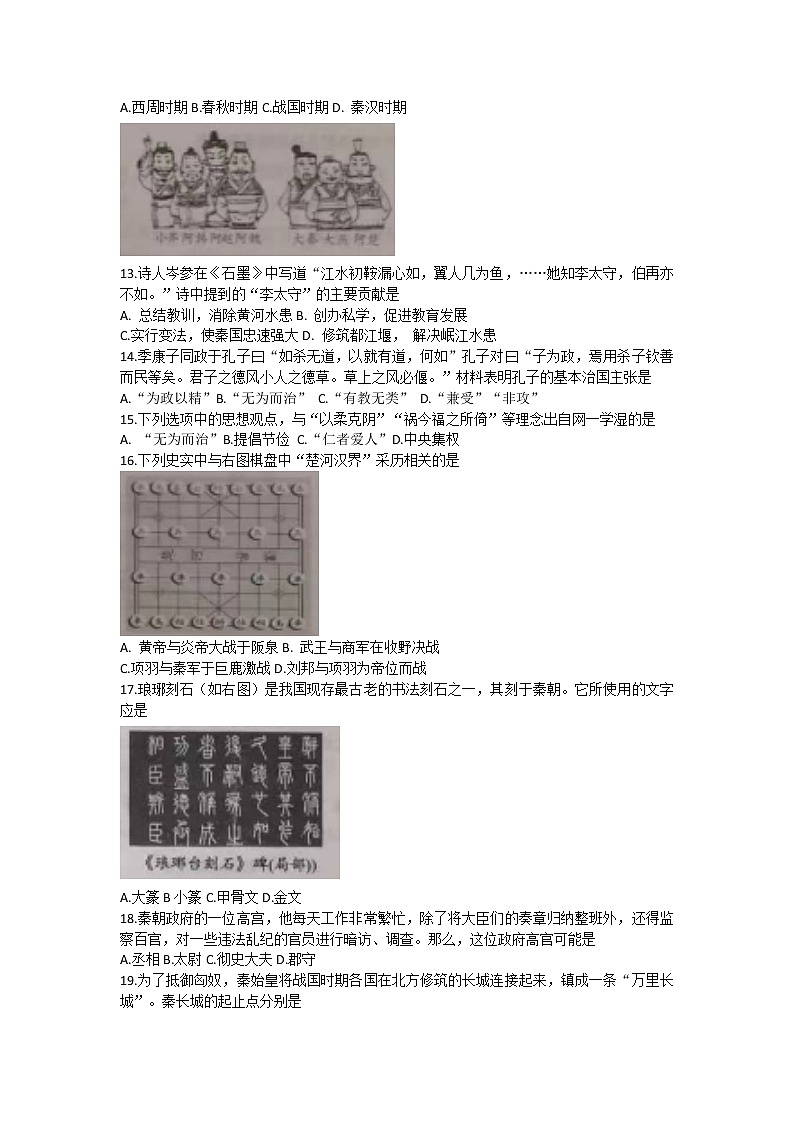 A.西周时期 B.春秋时期 C.战国时期 D. 秦汉时期
小齐 阿韩 阿赵 阿魏 大秦 大燕 阿楚
13.诗人岑参在《石墨》中写道“江水初鞍漏心如，翼人几为鱼，……她知李太守，伯再亦
不如。”诗中提到的“李太守”的主要贡献是
A. 总结教训，消除黄河水患 B. 创办私学，促进教育发展
C.实行变法，使秦国忠速强大 D. 修筑都江堰， 解决岷江水患
14.季康子同政于孔子曰“如杀无道，以就有道，何如”孔子对曰“子为政，焉用杀子钦善
而民等矣。君子之德风小人之德草。草上之风必偃。”材料表明孔子的基本治国主张是
A.“为政以精”B.“无为而治” C.“有教无类” D.“兼受”“非攻”
15.下列选项中的思想观点，与“以柔克阴”“祸今福之所倚”等理念出自网一学湿的是
A. “无为而治”B.提倡节俭 C.“仁者爱人”D.中央集权
16.下列史实中与右图棋盘中“楚河汉界”采历相关的是
A. 黄帝与炎帝大战于阪泉 B. 武王与商军在收野决战
C.项羽与秦军于巨鹿激战 D.刘邦与项羽为帝位而战
17.琅琊刻石（如右图）是我国现存最古老的书法刻石之一，其刻于秦朝。它所使用的文字
应是
《琅琊台刻石》碑(局部))
A.大篆 B 小篆 C.甲骨文 D.金文
18.秦朝政府的一位高宫，他每天工作非常繁忙，除了将大臣们的奏章归纳整班外，还得监
察百官，对一些违法乱纪的官员进行暗访、调查。那么，这位政府高官可能是
A.丞相 B.太尉 C.彻史大夫 D.郡守
19.为了抵御匈奴，秦始皇将战国时期各国在北方修筑的长城连接起来，镇成一条“万里长
城”。秦长城的起止点分别是